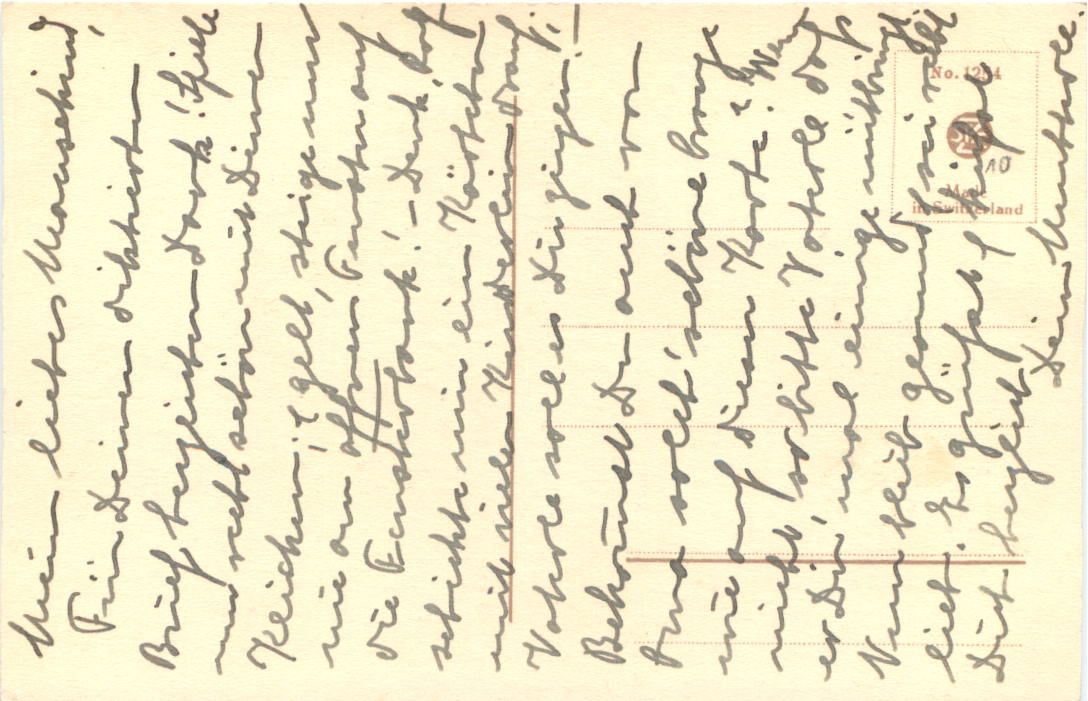 Mein liebes Mausekind,
Für Deinen diktierten
Brief herzlichen Dank! Spiele
nur recht schön mit Deinem
Kleichen, gelt, steige nur
nie am offnen Fenster auf
die Fensterbank! – Denk,
schickte mir ein Kärtchen
mit vielen Kinderlein drauf;
Vaterle soll es Dir zeigen! –
Bekommst Du auch von
Pua solch' schöne
wie auf dieser Karte? Wenn
nicht, so bitte Vaterle, daß
er Dir mal einige mitbringt.
Nun bleib gesund u. sei recht
lieb. Es grüßt u. küßt
Dich herzlichst Dein Mutterle.
No. 1254
10
Made
in Switzerland